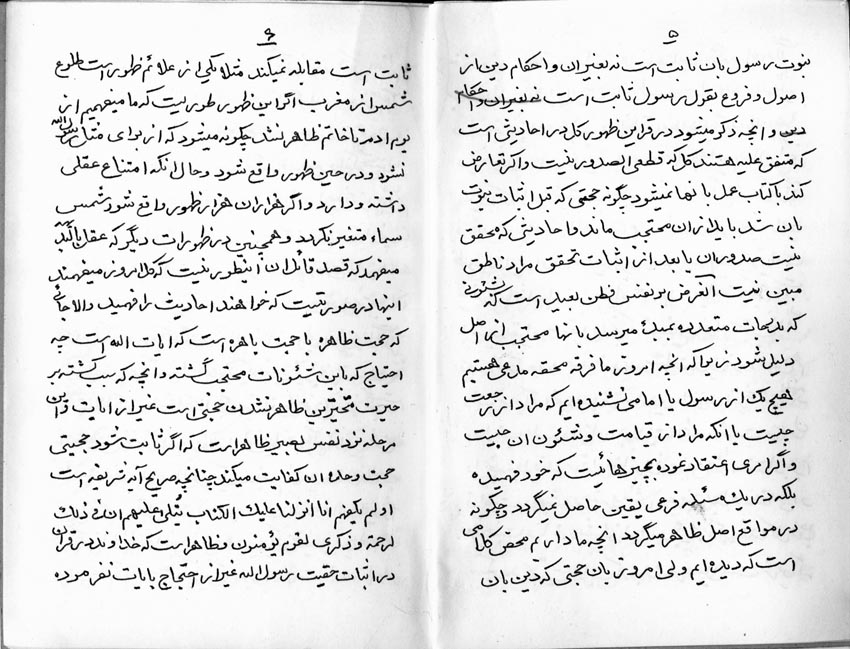 ۵
نبوت رسول بان ثابت است نه بغیر ان و احکام دین از
اصول و فروع بقول رسول ثابت است نه بغیر ان و احکام
دین و انچه ذکر میشود در قراین ظهور کل در احادیثی است
که متفق علیه هستند کل که قطعی الصدور نیست و اگر تعارض
کند با کتاب عمل بانها نمیشود چگونه حجتی که قبل اثبات نبوت
بان شد باید از ان محتجب ماند و احادیثی که محقق
نیست صدور ان یا بعد از اثبات تحقق مراد ناطق
مبین نیست الغرض بر نفس فطن بعید است که شئونی
که بدرجات متعدده بمبدء میرسد بانها محتجب از اصل
دلیل شود زیرا که انچه امروز ما فرقه محقه مدعی هستیم
هیچ یک از رسول یا امامی نشنیده ایم که مراد از رجعت
چیست یا انکه مراد از قیامت و شئون ان چیست
و اگر امری اعتقاد نموده بچیزهائیست که خود فهمیده
بلکه در یک مسئله فرعی یقین حاصل نمیگردد و چگونه
در مواقع اصل ظاهر میگردد انچه ما داریم محض کلامی
است که دیده ایم ولی امروز بان حجتی که دین بان
۶
ثابت است مقابله نمیکند مثلا یکی از علائم ظهور است طلوع
شمس از مغرب اگر این ظهور طوریست که ما میفهمیم از
یوم ادم تا خاتم ظاهر نشد چگونه میشود که از برای مثل رسول الله
نشود و در حین ظهور واقع شود و حال انکه امتناع عقلی
داشته و دارد و اگر هزاران هزار ظهور واقع شود شمس
سماء متغیر نگردد و همچنین در ظهورات دیگر که عقل بالبدیهه
میفهمد که قصد قائل ان اینطور نیست که کل امروز میفهمند
اینها در صورتیست که خواهند احادیث را فهمید والا جائی
که حجت ظاهره با حجت باهره است که ایات الله است چه
احتیاج که باین شئونات محتجب گشته و انچه که سبب گشته بر
حیرت متحیرین ظاهر نشدن حجتی است غیر از ایات و این
مرحله نزد نفس بصیر ظاهر است که اگر ثابت شود حجیتی
حجت وحده ان کفایت میکند چنانچه صریح آیه شریفه است
اولم یکفهم انا انزلنا علیك الکتاب یتلی علیهم ان فی ذلك
لرحمة و ذکری لقوم یؤمنون و ظاهر است که خداوند در قران
در اثبات حقیت رسول الله غیر از احتجاج بایات نفرموده